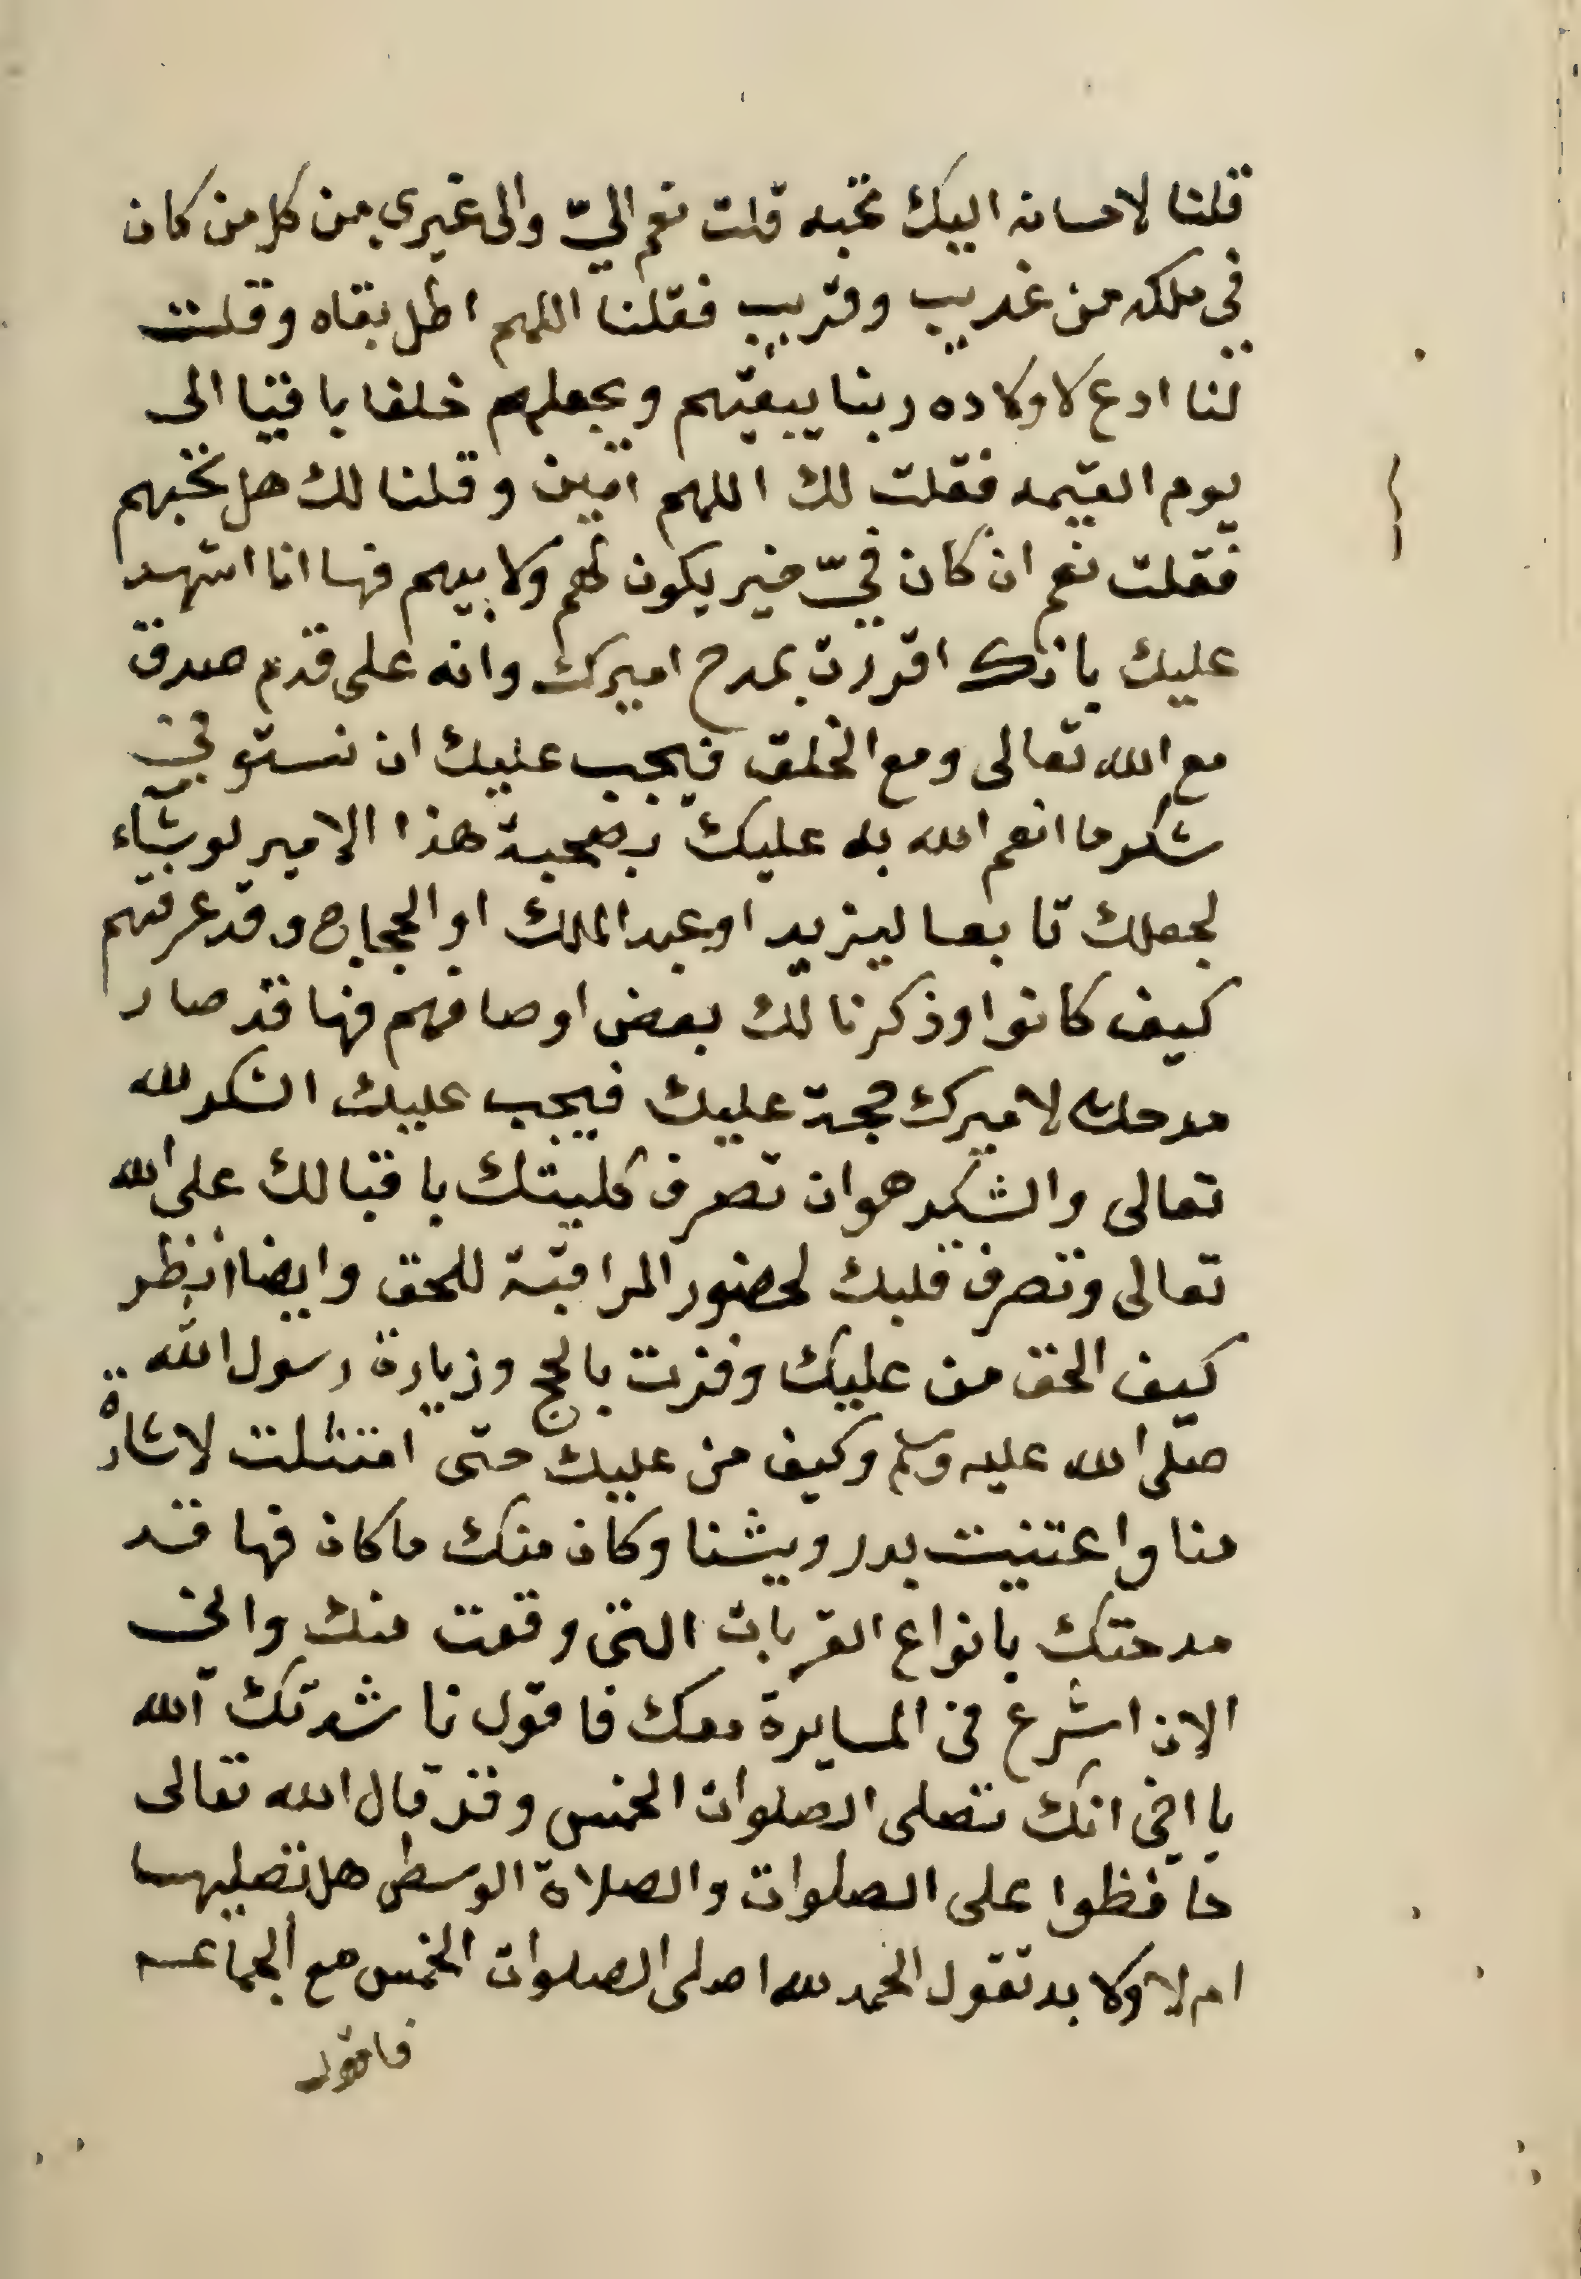 قلنا لاحسانه اليك تحبه قلت نعم اليّ والى غيري من كل من كان
في ملكه من غريب وقريب فقلنا اللهم اطل بقاه وقلت
لنا ادع لاولاده ربنا يبقيهم ويجعلهم خلفا باقيا الى
يوم القيمه فقلت لك اللهم امين وقلنا لك هل تحبهم
فقلت نعم ان كان فيّ خير يكون لهم ولابيهم فها انا اشهد
عليك بانك اقررت بمدح اميرك وانه على قدم صدق
مع الله تعالى ومع الخلق فيجب عليك ان تستوفي
شكر ما انعم الله به عليك بصحبة هذا الامير لو شاء
لجعلك تابعا ليزيد او عبد الملك او الحجاج وقد عرفتهم
كيف كانوا وذكرنا لك بعض اوصافهم فها قد صار
مدحك لاميرك حجة عليك فيجب عليك الشكر لله
تعالى والشكر هو ان تصرف كليتك باقبالك على الله
تعالى وتصرف قلبك لحضور المراقبة للحق وايضا انظر
كيف الحق من عليك وفزت بالحج وزيارة رسول الله
صلى الله عليه وسلم وكيف من عليك حتى امتثلت لاشارة
منا واعتنيت بدرويشنا وكان منك ما كان فها قد
مدحتك بانواع القربات التي وقعت منك واني
الان اشرع في المسايرة معك فاقول ناشدتك الله
يا اخي انك تصلى الصلوات الخمس وقد قال الله تعالى
حافظوا على الصلوات والصلاة الوسطى هل تصليها
ام لا ولا بد تقول الحمد لله اصلى الصلوات الخمس مع الجماعه
فاقول